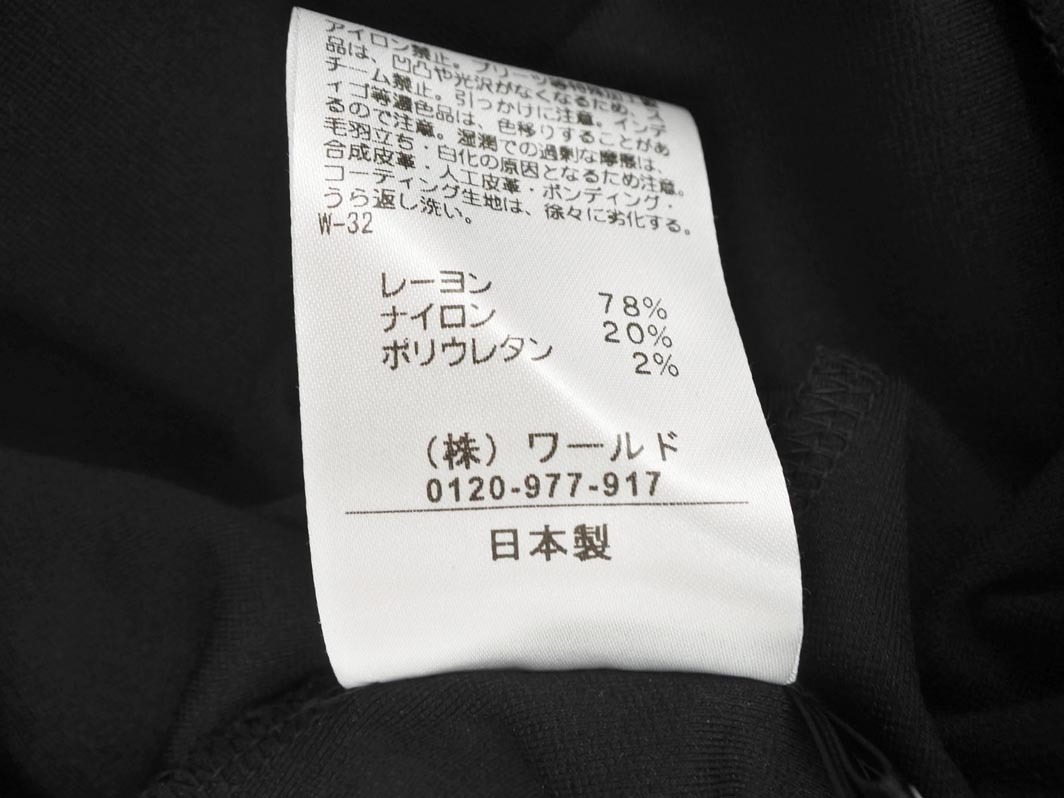 アイロン禁止。プリーツ等特殊加工製
品は、凹凸や光沢がなくなるため、ス
チーム禁止。引っかけに注意。インデ
ィゴ等濃色品は、色移りすることがあ
るので注意。湿潤での過剰な摩擦は、
毛羽立ち・白化の原因となるため注意。
合成皮革・人工皮革・ボンディング・
コーティング生地は、徐々に劣化する。
うら返し洗い。
W-32
レーヨン 78%
ナイロン 20%
ポリウレタン 2%
(株) ワールド
0120-977-917
日本製